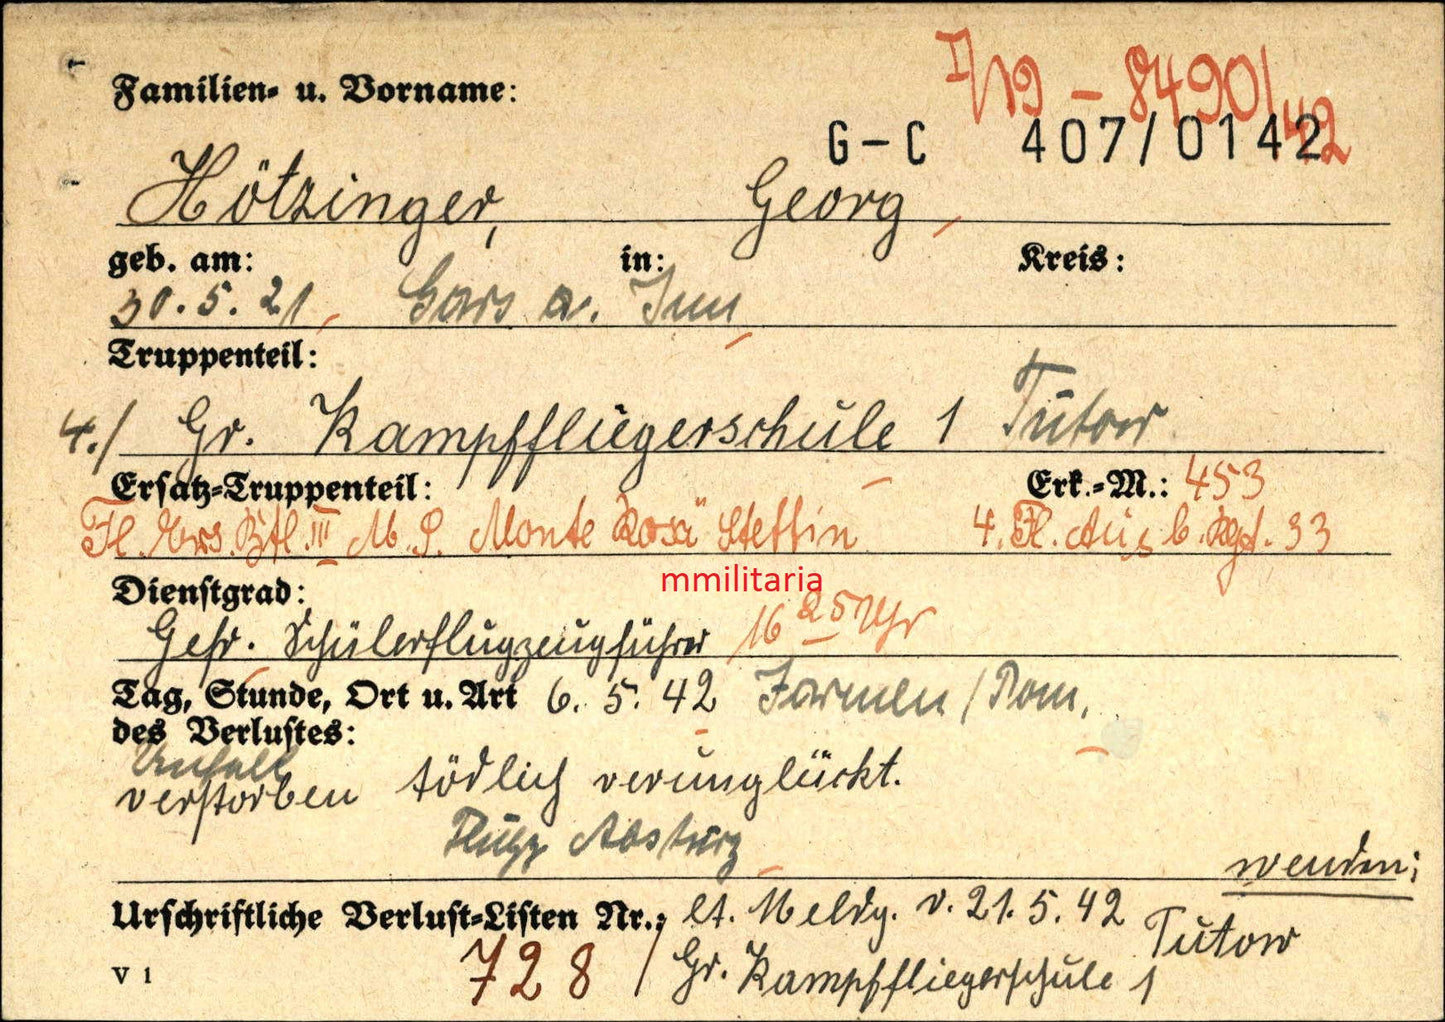 I/19 - 8490/42
Familien- u. Vorname:
G-C 407/0142
Hötzinger, Georg
geb. am: in: Kreis:
30.5.21 Gars a. Inn
Truppenteil:
4./ Gr. Kampffliegerschule 1 Tutow
Ersatz-Truppenteil: Erk.-M.: 453
Fl. Ers. Btl. III M.S. Monte Rosa" Stettin 4. Fl. Ausb. Rgt. 33
mmilitaria
Dienstgrad:
Gefr. Schülerflugzeugführer 16 25 Uhr
Tag, Stunde, Ort u. Art 6. 5. 42 Jarmen / Pom.
des Verlustes:
Unfall
verstorben tödlich verunglückt.
Flugz Absturz
wenden!
Urschriftliche Verlust-Listen Nr.: lt. Meldg. v. 21.5.42
728 / Gr. Kampffliegerschule 1 Tutow
V 1